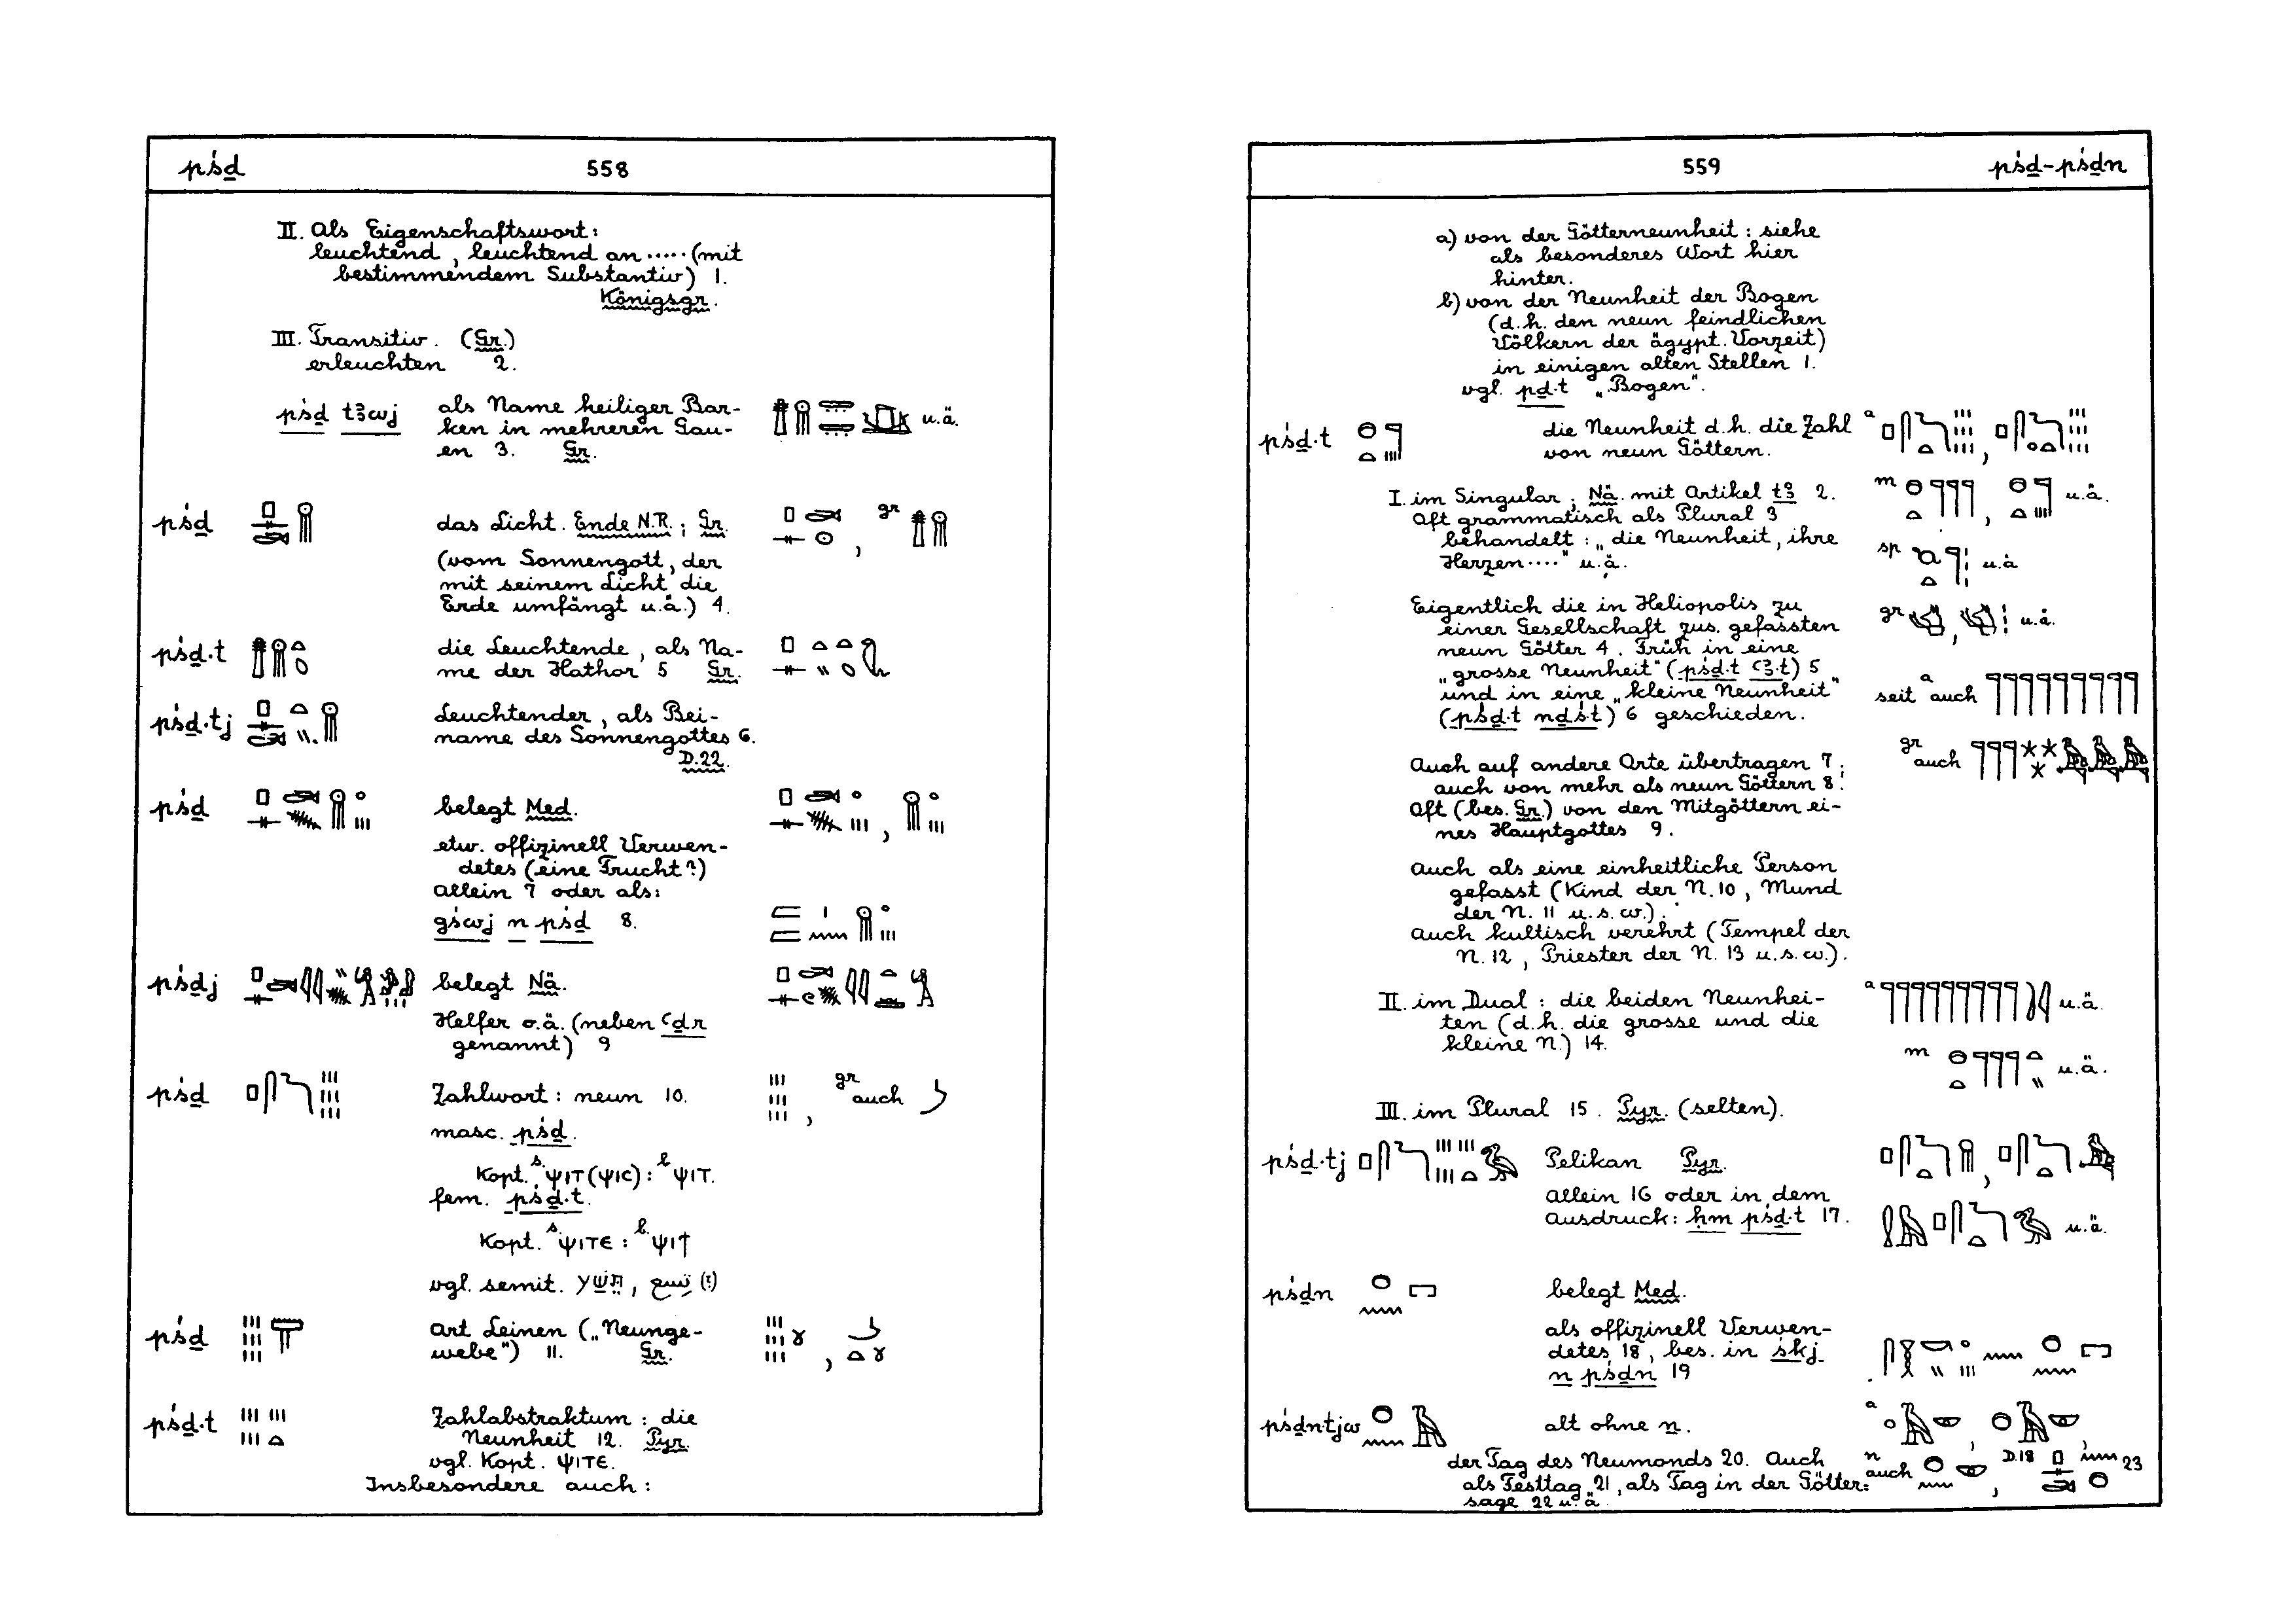 pśḏ 558
II. Als Eigenschaftswort:
leuchtend, leuchtend an ····· (mit
bestimmendem Substantiv) 1.
Königsgr.
III. Transitiv. (Gr.)
erleuchten 2.
pśḏ tꜣwj als Name heiliger Bar- u.ä.
ken in mehreren Gau-
en 3. Gr.
pśḏ das Licht. Ende N.R.; Gr. , gr
(vom Sonnengott, der
mit seinem Licht die
Erde umfängt u.ä.) 4.
pśḏ·t die Leuchtende, als Na-
me der Hathor 5 Gr.
pśḏ·tj Leuchtender, als Bei-
name des Sonnengottes 6.
D.22.
pśḏ belegt Med. ,
etw. offizinell Verwen-
detes (eine Frucht?)
allein 7 oder als:
gśwj n pśḏ 8.
pśḏj belegt Nä.
Helfer o.ä. (neben ꜥḏr
genannt) 9
pśḏ Zahlwort: neun 10. , gr auch
masc. pśḏ.
Kopt. s. ⲯⲓⲧ (ⲯⲓⲥ) : b. ⲯⲓⲧ.
fem. pśḏ·t.
Kopt. s. ⲯⲓⲧⲉ : b. ⲯⲓϯ
vgl. semit. תשע, تسع (?)
pśḏ Art Leinen („Neunge-
webe") 11. Gr. ,
pśḏ·t Zahlabstraktum: die
Neunheit 12. Pyr.
vgl. Kopt. ⲯⲓⲧⲉ.
Insbesondere auch:
559 pśḏ-pśḏn
a) von der Götterneunheit: siehe
als besonderes Wort hier
hinter.
b) von der Neunheit der Bogen
(d.h. den neun feindlichen
Völkern der ägypt. Vorzeit)
in einigen alten Stellen 1.
vgl. pḏ·t „Bogen".
pśḏ·t die Neunheit d.h. die Zahl a ,
von neun Göttern.
I. im Singular, Nä. mit Artikel tꜣ 2. m , u.ä.
Oft grammatisch als Plural 3
behandelt: „die Neunheit, ihre
Herzen ····" u.ä. sp u.ä
Eigentlich die in Heliopolis zu
einer Gesellschaft zus. gefassten gr , u.ä.
neun Götter 4. Früh in eine
„grosse Neunheit" (pśḏ·t ꜥꜣ·t) 5
und in eine „kleine Neunheit" seit a auch
(pśḏ·t nḏś·t) 6 geschieden.
Auch auf andere Orte übertragen 7; gr auch
auch von mehr als neun Göttern 8.
Oft (bes. Gr.) von den Mitgöttern ei-
nes Hauptgottes 9.
Auch als eine einheitliche Person
gefasst (Kind der N. 10, Mund
der N. 11 u.s.w.).
Auch kultisch verehrt (Tempel der
N. 12, Priester der N. 13 u.s.w.).
II. im Dual: die beiden Neunhei- a u.ä.
ten (d.h. die grosse und die
kleine N.) 14. m u.ä.
III. im Plural 15. Pyr. (selten).
pśḏ·tj Pelikan Pyr. ,
allein 16 oder in dem
Ausdruck: ḥm pśḏ·t 17. u.ä.
pśḏn belegt Med.
als offizinell Verwen-
detes 18, bes. in śkj
n pśḏn 19
pśḏntjw alt ohne n. a , ,
der Tag des Neumonds 20. Auch n auch , D.18 23
als Festtag 21, als Tag in der Götter-
sage 22 u.ä.